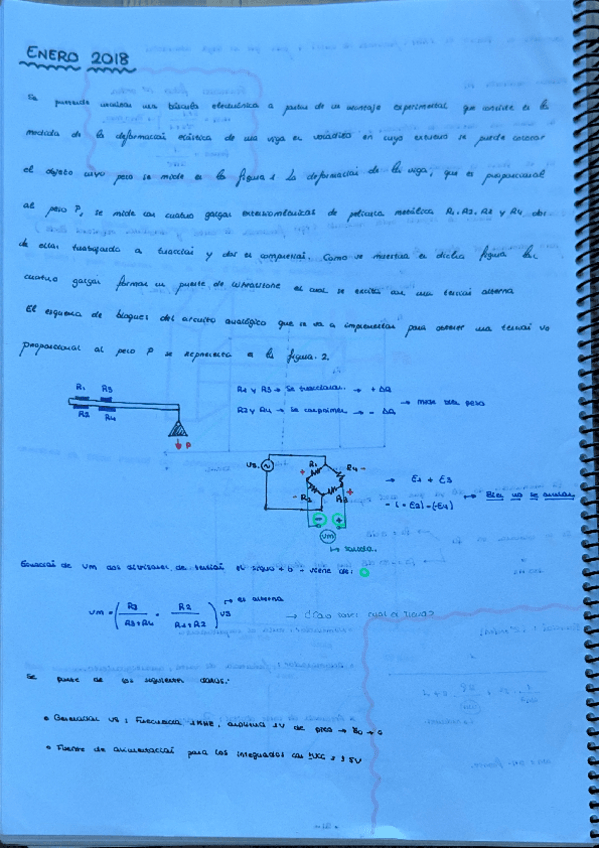 ENERO 2018
Se pretende analizar una báscula electrónica a partir de un montaje experimental que consiste en la
medida de la deformación elástica de una viga en voladizo en cuyo extremo se puede colocar
el objeto cuyo peso se mide en la figura 1. La deformación de la viga, que es proporcional
al peso P, se mide con cuatro galgas extensiométricas de película metálica R1, R2, R3 y R4, dos
de ellas trabajando a tracción y dos en compresión. Como se muestra en dicha figura las
cuatro galgas forman un puente de Wheatstone el cual se excita con una tensión alterna
El esquema de bloques del circuito analógico que se va a implementar para obtener una tensión vo
proporcional al peso P se representa en la figura 2.
R1 R3
R2 R4
P
R1 y R3 → Se traccionan → + ΔR
R2 y R4 → Se comprimen → - ΔR
→ mide bien peso
vs
+ R1 R4 -
- R2 R3 +
- +
vm
↳ salida.
→ E1 + E3
- (-E2) - (-E4)
↦ Bien, no se anulan
Ecuación de vm dos divisores de tensión el signo + o - viene de: O
vm = (R3/(R3+R4) - R2/(R1+R2)) vs
→ es alterna
Se parte de los siguientes datos:
• Generador vs: Frecuencia 1 KHz, amplitud 1V de pico
• Fuente de alimentación para los integrados